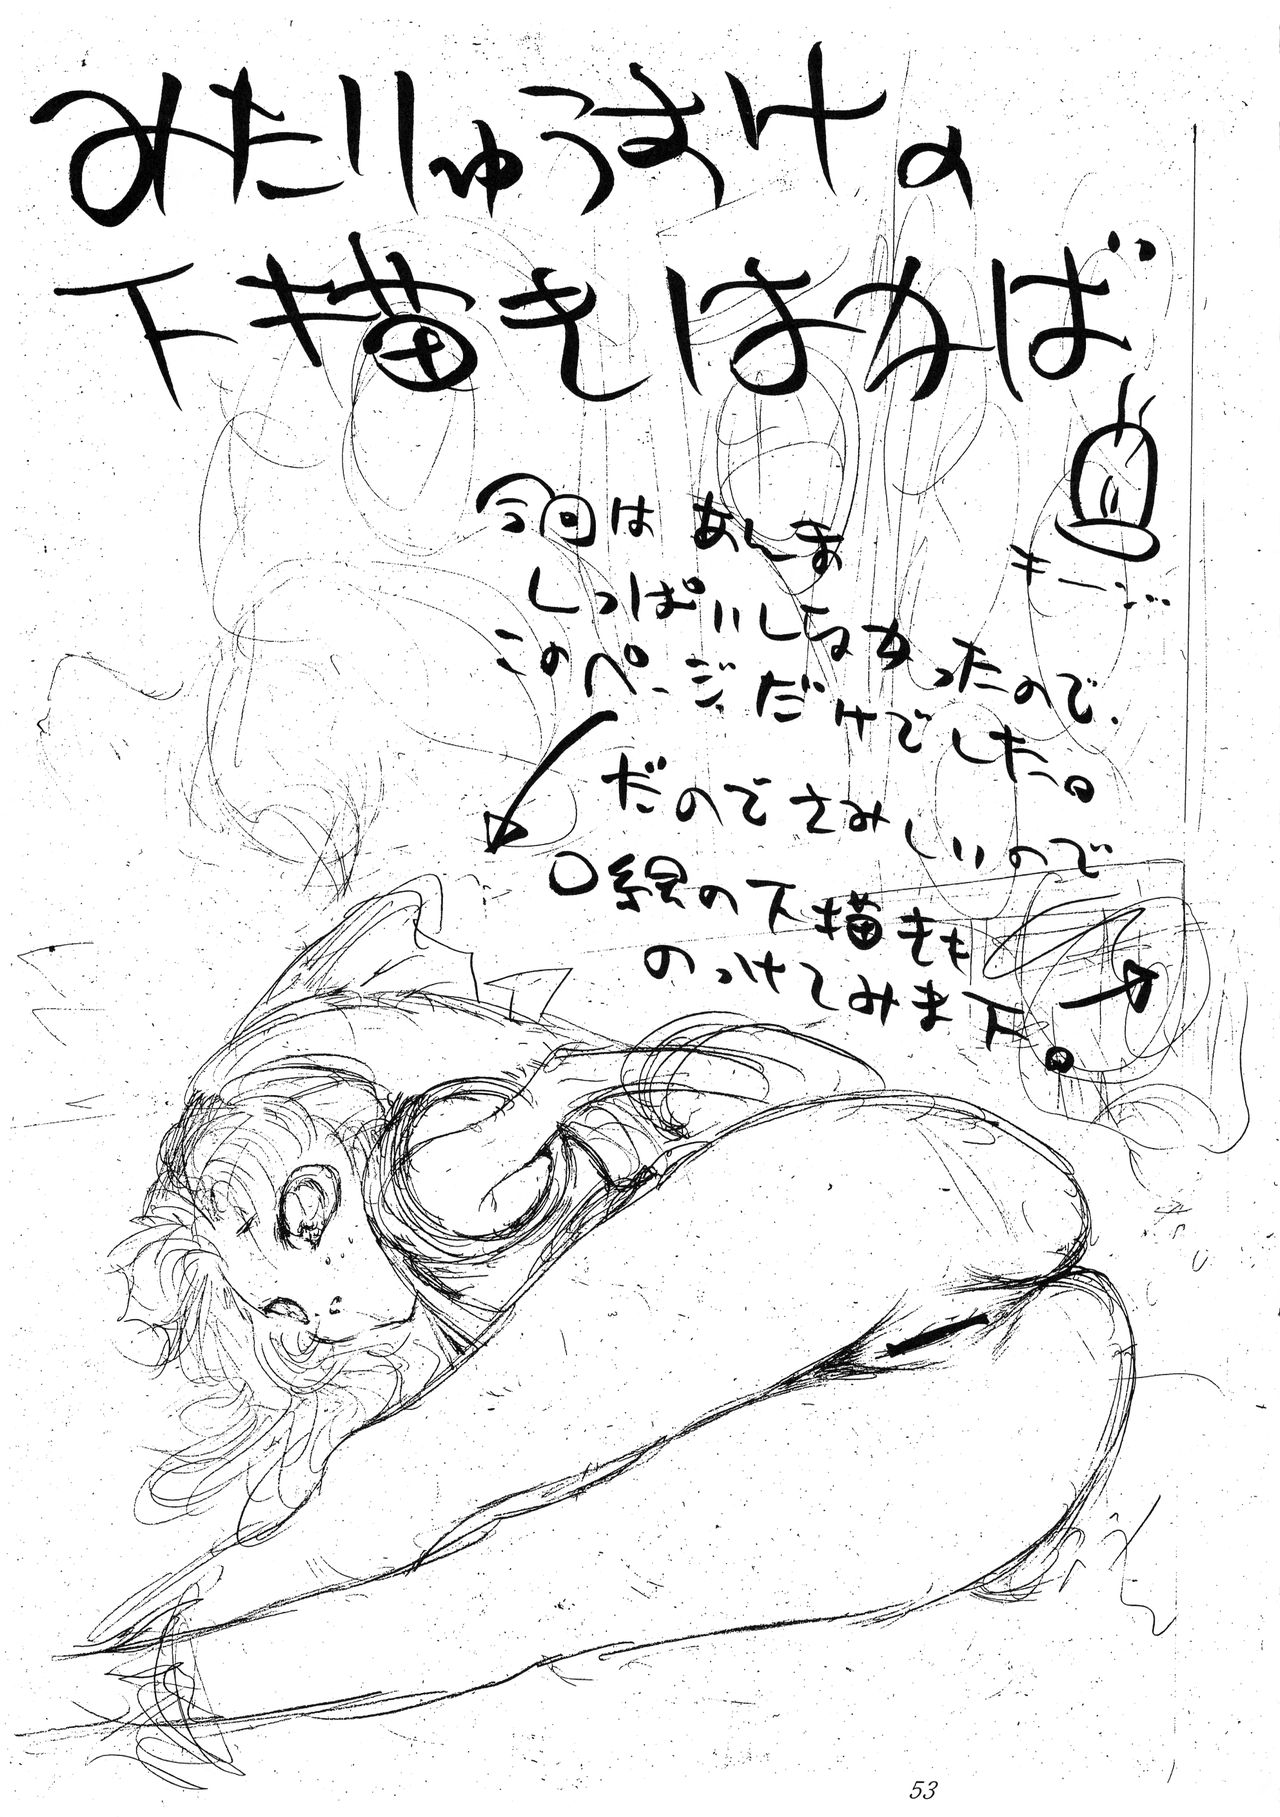 みたりゅうすけの
下描きはかば
キーン
今回は あんま
しっぱいしなかったので、
このページだけでした。
だのでさみしいので
口絵の下描きも
のっけてみま下。
53